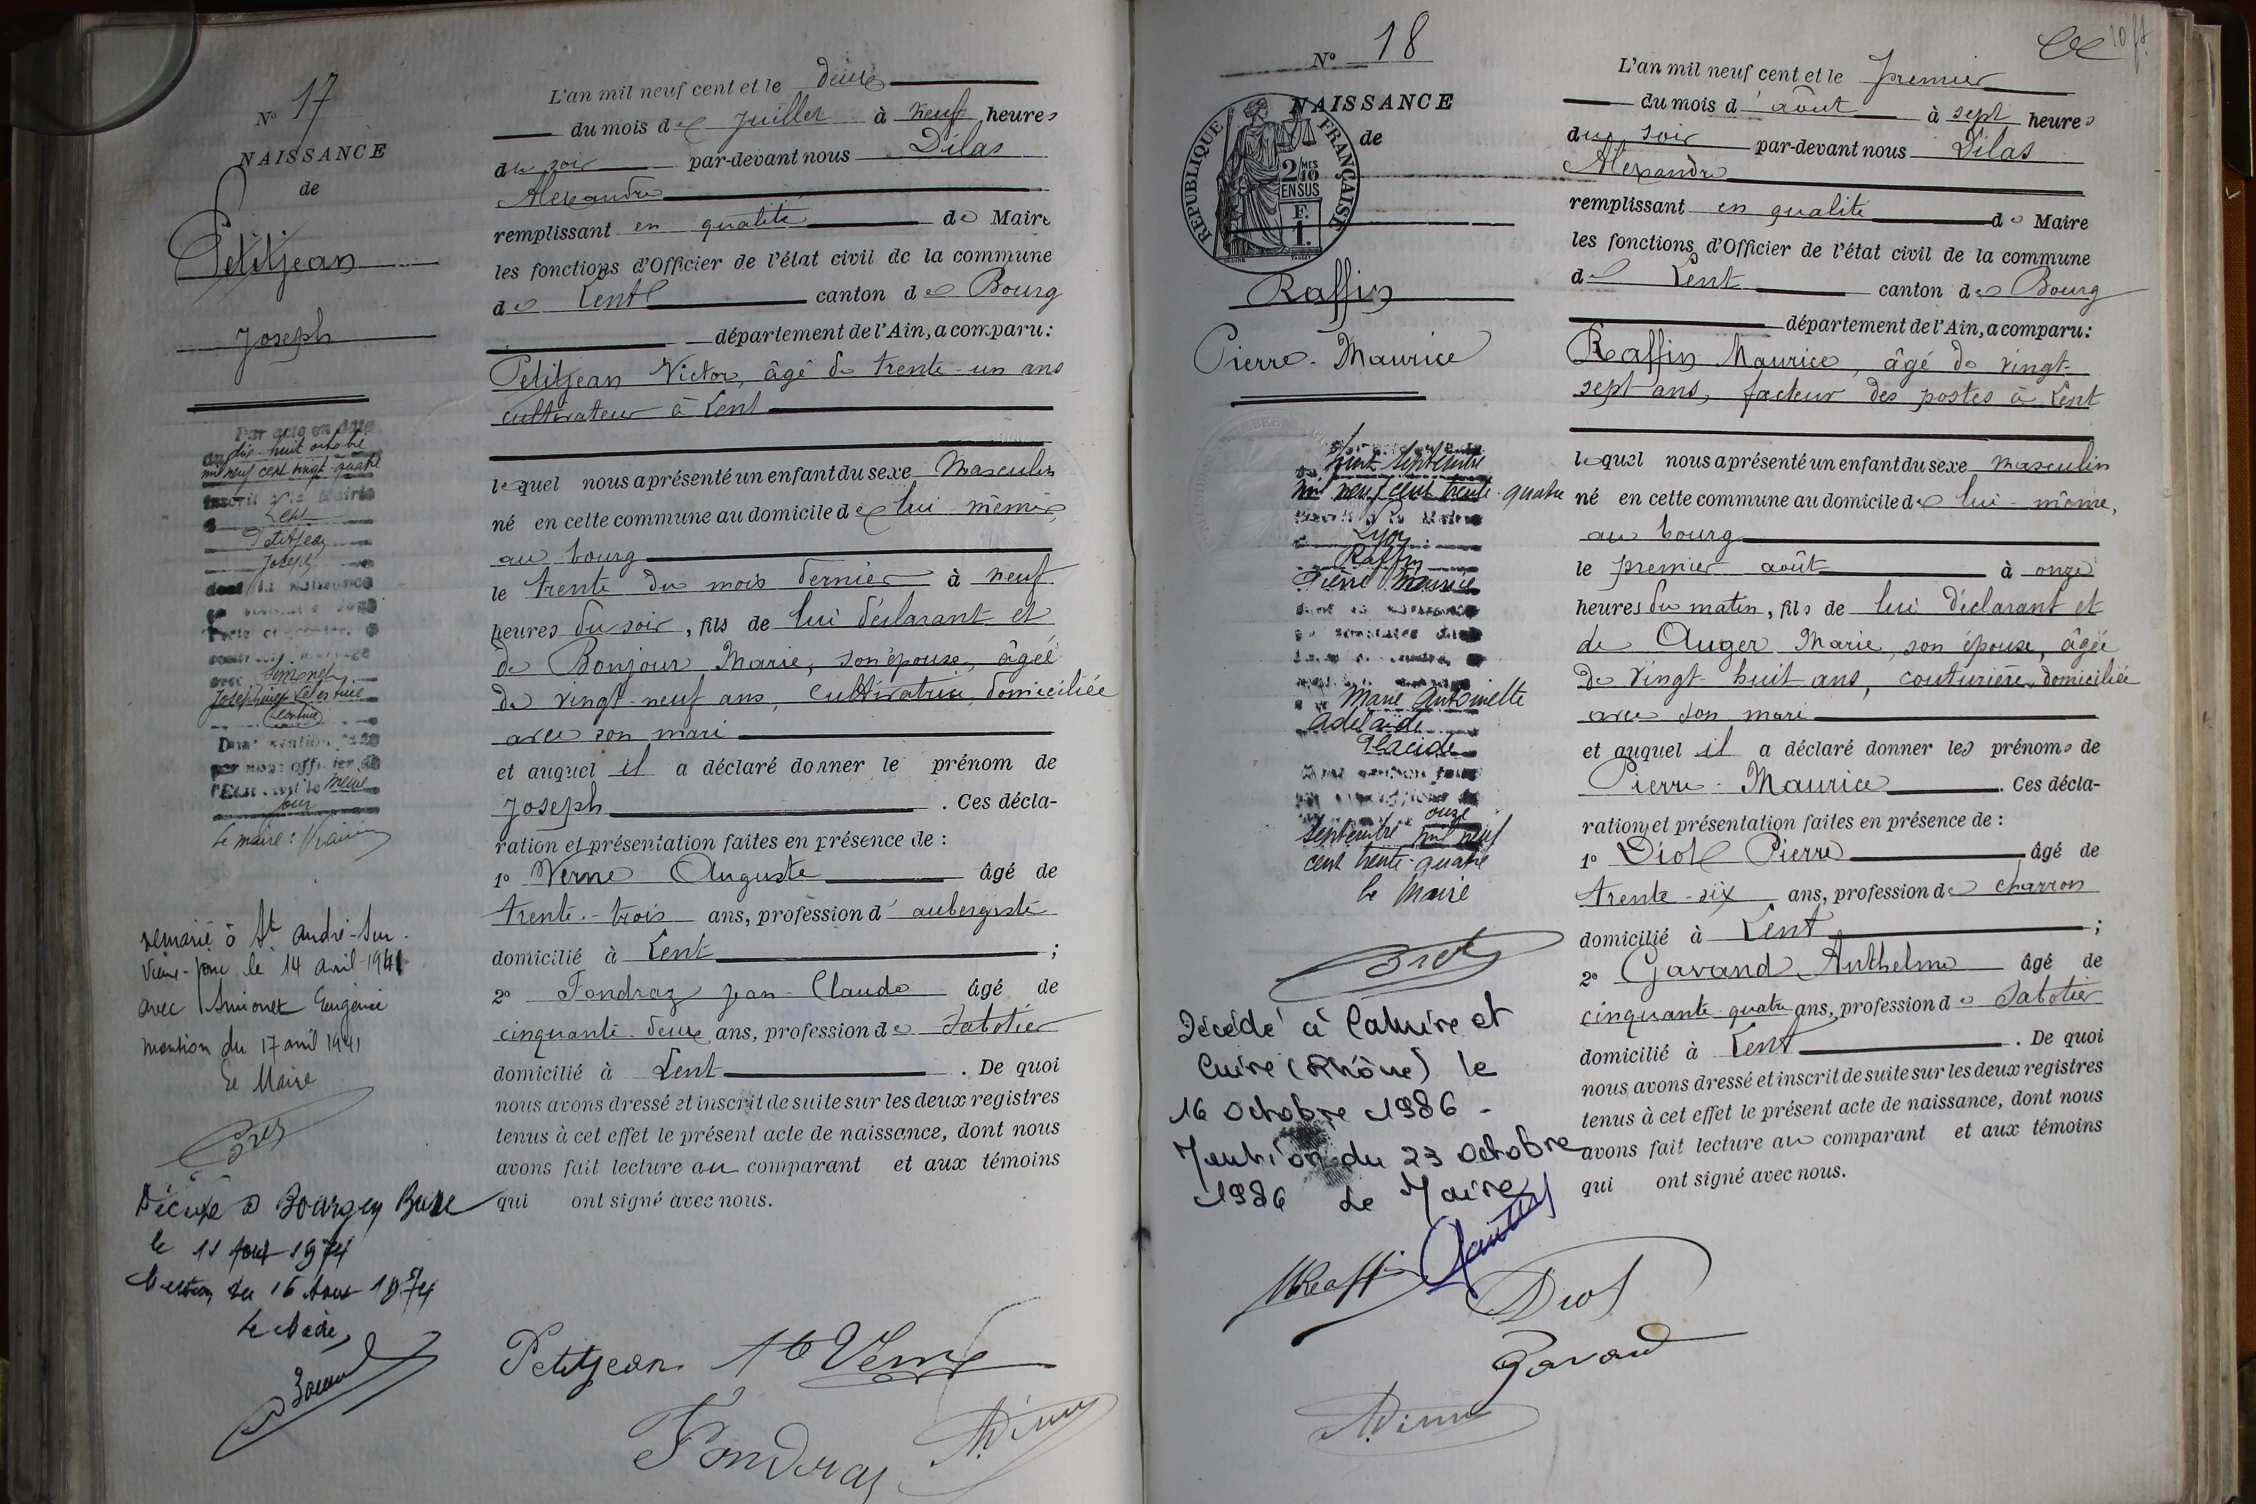 N° 17
NAISSANCE
de
Petitjean
Joseph
dix-huit octobre
mil neuf cent vingt-quatre
Lent
Petitjean
Joseph
avec Simonet
Joséphine
même
jour
Le maire :
remarié à St André-sur-
Vieux-Jonc le 14 avril 1941
avec Simonet Eugénie
mention du 17 avril 1941
Le Maire
Décédé à Bourg en Bresse
le 11 Août 1974
Mention du 16 Août 1974
Le Maire,
L'an mil neuf cent et le deux
du mois de Juillet à neuf heures
du soir par-devant nous Dilas
Alexandre
remplissant en qualité de Maire
les fonctions d'Officier de l'état civil de la commune
de Lent canton de Bourg
département de l'Ain, a comparu :
Petitjean Victor, âgé de trente-un ans
cultivateur à Lent
lequel nous a présenté un enfant du sexe masculin
né en cette commune au domicile de lui même
au bourg
le trente du mois dernier à neuf
heures du soir, fils de lui déclarant et
de Bonjour Marie, son épouse, âgée
de vingt-neuf ans, cultivatrice, domiciliée
avec son mari
et auquel il a déclaré donner le prénom de
Joseph. Ces décla-
ration et présentation faites en présence de :
1° Verne Auguste âgé de
trente-trois ans, profession d'aubergiste
domicilié à Lent ;
2° Fondraz Jean-Claude âgé de
cinquante-deux ans, profession de Sabotier
domicilié à Lent. De quoi
nous avons dressé et inscrit de suite sur les deux registres
tenus à cet effet le présent acte de naissance, dont nous
avons fait lecture au comparant et aux témoins
qui ont signé avec nous.
Petitjean Verne
Fondraz
N° 18
NAISSANCE
de
RÉPUBLIQUE FRANÇAISE
2 MES
10
EN SUS
F.
1.
Raffin
Pierre-Maurice
huit septembre
mil neuf cent trente-quatre
Lyon
Raffin
Pierre Maurice
Marie Antoinette
Adélaïde
Placide
onze
septembre mil neuf
cent trente-quatre
le Maire
Décédé à Caluire et
Cuire (Rhône) le
16 Octobre 1986 -
Mention du 23 Octobre
1986 Le Maire
L'an mil neuf cent et le premier
du mois d'août à sept heures
du soir par-devant nous Dilas
Alexandre
remplissant en qualité de Maire
les fonctions d'Officier de l'état civil de la commune
de Lent canton de Bourg
département de l'Ain, a comparu :
Raffin Maurice, âgé de vingt-
sept ans, facteur des postes à Lent
lequel nous a présenté un enfant du sexe masculin
né en cette commune au domicile de lui-même,
au bourg
le premier août à onze
heures du matin, fils de lui déclarant et
de Auger Marie, son épouse, âgée
de vingt-huit ans, couturière, domiciliée
avec son mari
et auquel il a déclaré donner les prénoms de
Pierre-Maurice. Ces décla-
ration et présentation faites en présence de :
1° Diot Pierre âgé de
trente-six ans, profession de charron
domicilié à Lent ;
2° Gavand Anthelme âgé de
cinquante-quatre ans, profession de Sabotier
domicilié à Lent. De quoi
nous avons dressé et inscrit de suite sur les deux registres
tenus à cet effet le présent acte de naissance, dont nous
avons fait lecture au comparant et aux témoins
qui ont signé avec nous.
MRaffin
Diot
Gavand